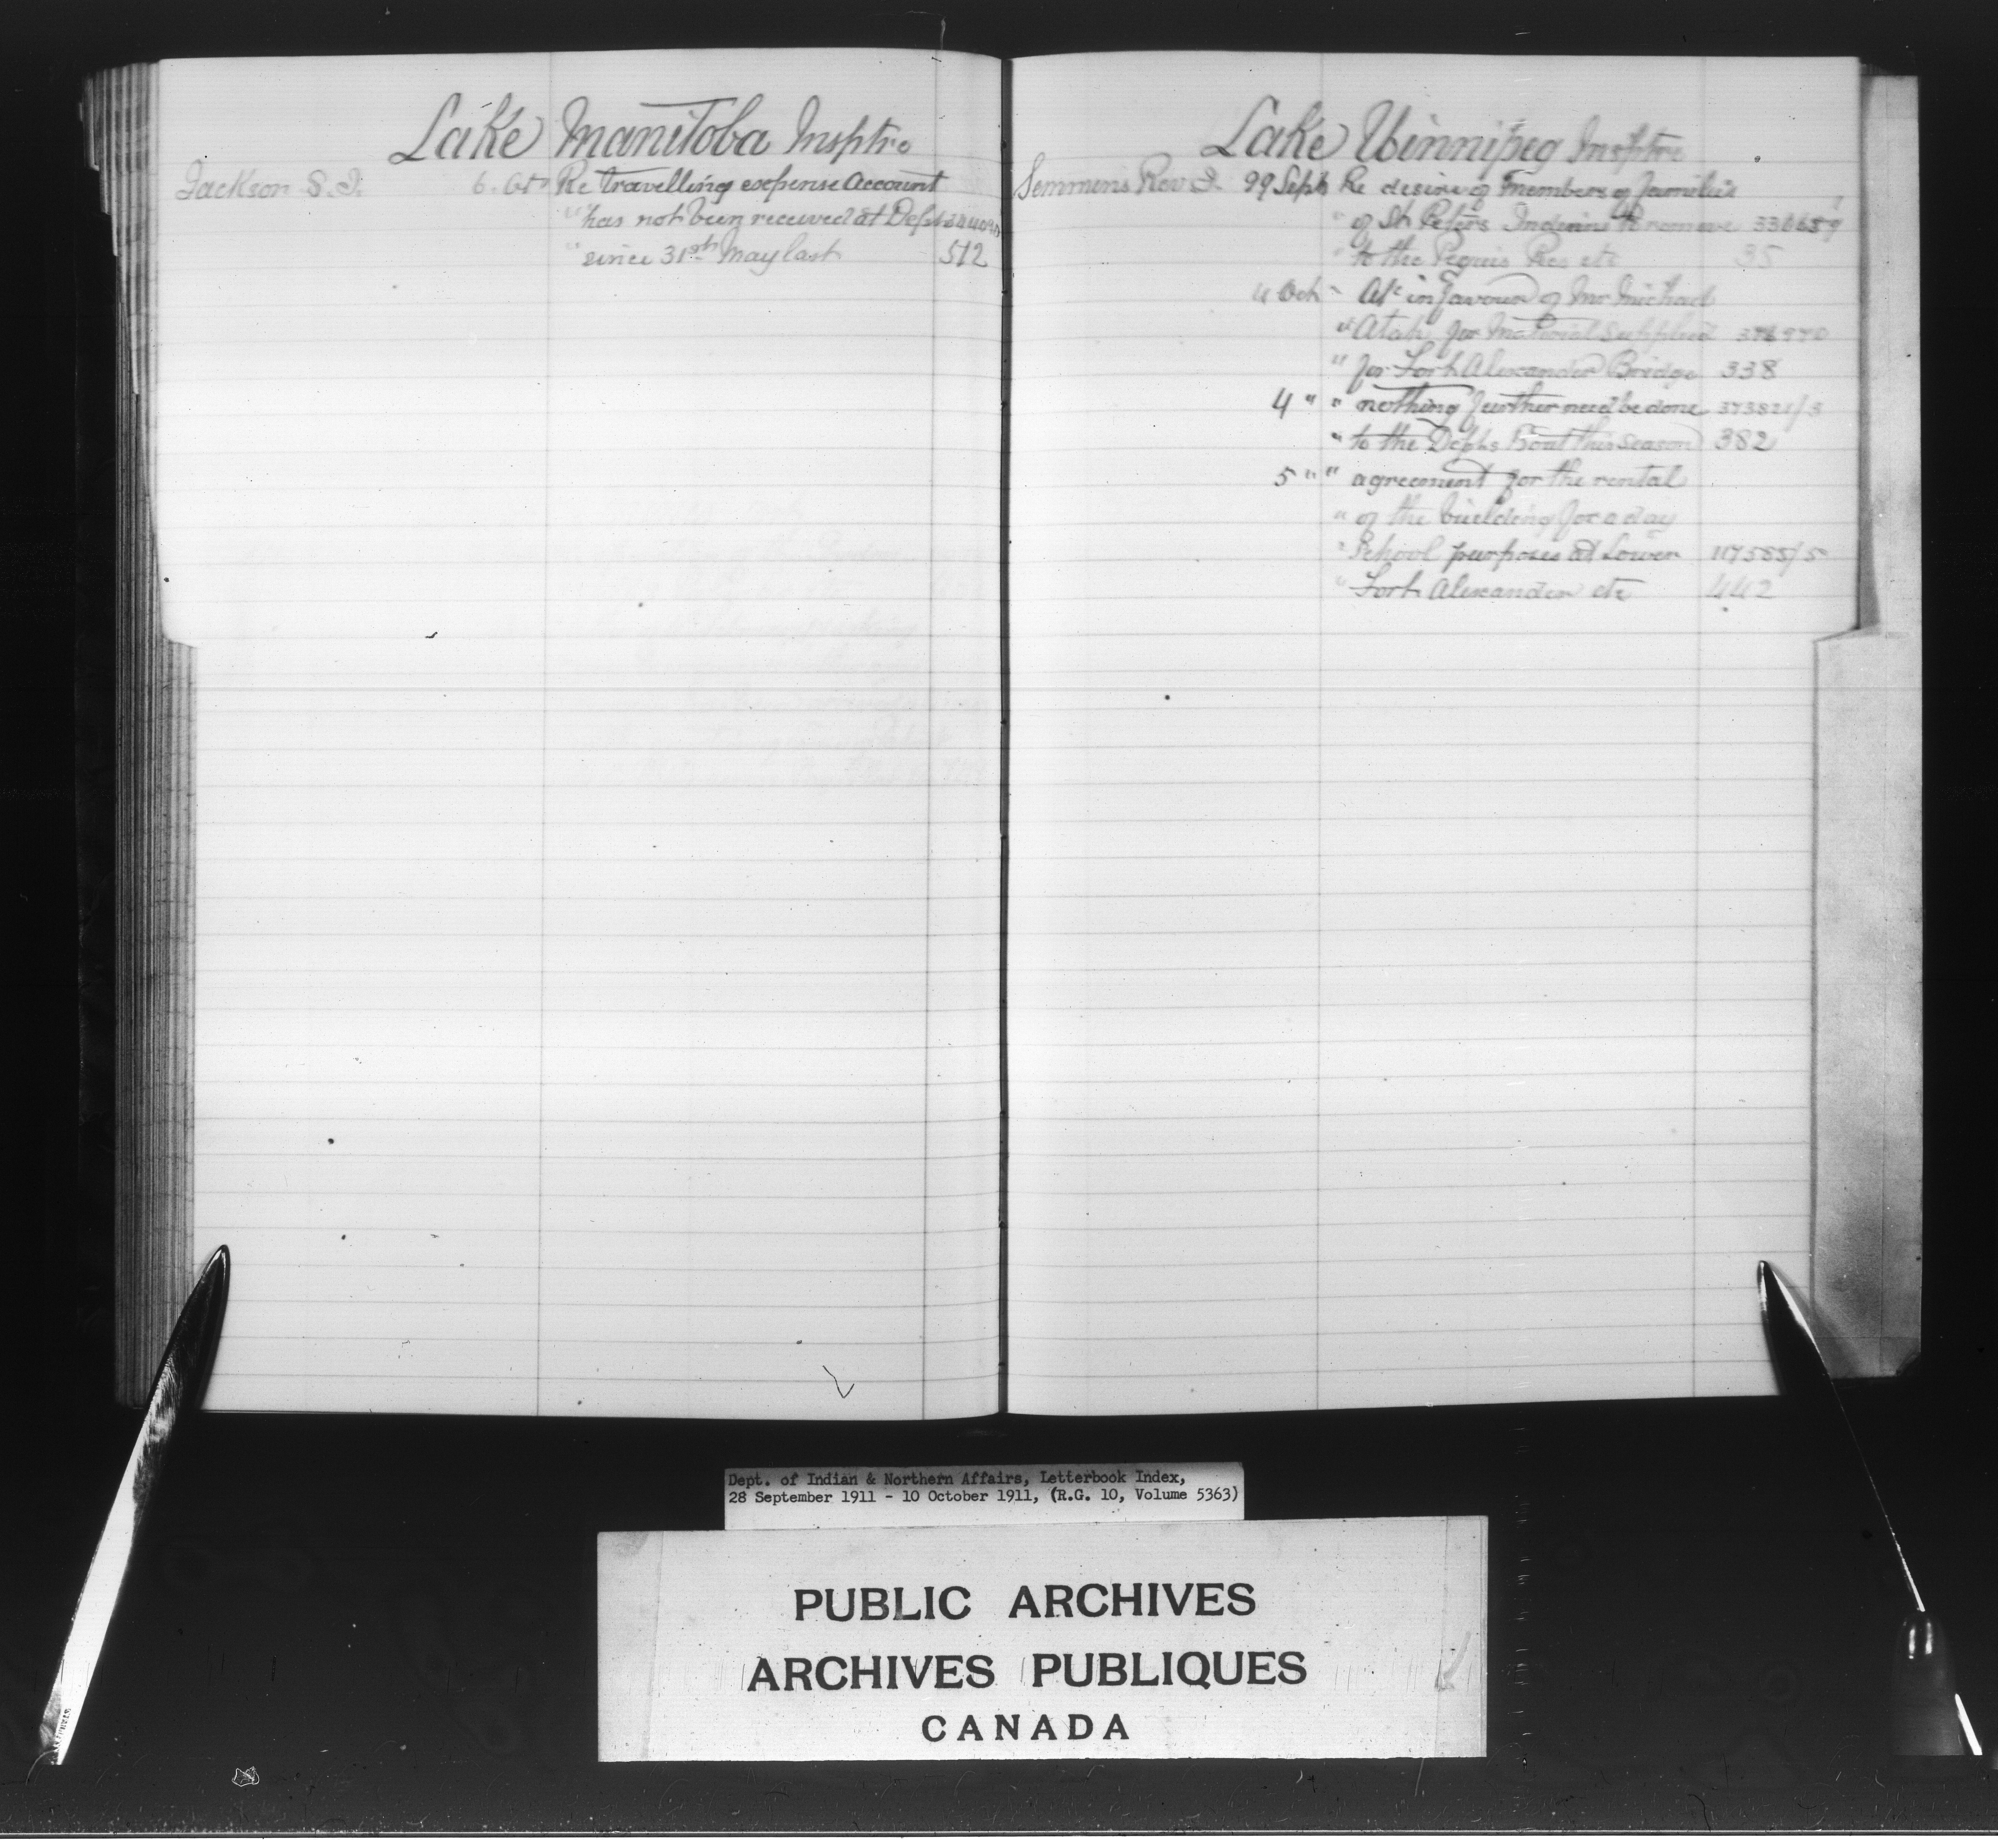 Lake Manitoba Insptre
Jackson S. J. 6. Oct Re travelling expense account
" has not been received at Dept
" since 31st May last 512
Lake Winnipeg Insptre
Semmens Rev J. 29 Sept Re desire of members of families
" of St Peters Indians to remove
" to the Peguis Res etc 35
4 Oct " in favour of Mr Michael
" for material supplied
" for Fort Alexander Bridge 338
4 " " nothing further need be done 373821/3
" to the Depts Boat this season 382
5 " " agreement for the rental
" of the building for a day
" School purposes at Lower 117585/5
" Fort Alexander etc 442
Dept. of Indian & Northern Affairs, Letterbook Index,
28 September 1911 - 10 October 1911, (R.G. 10, Volume 5363)
PUBLIC ARCHIVES
ARCHIVES PUBLIQUES
CANADA